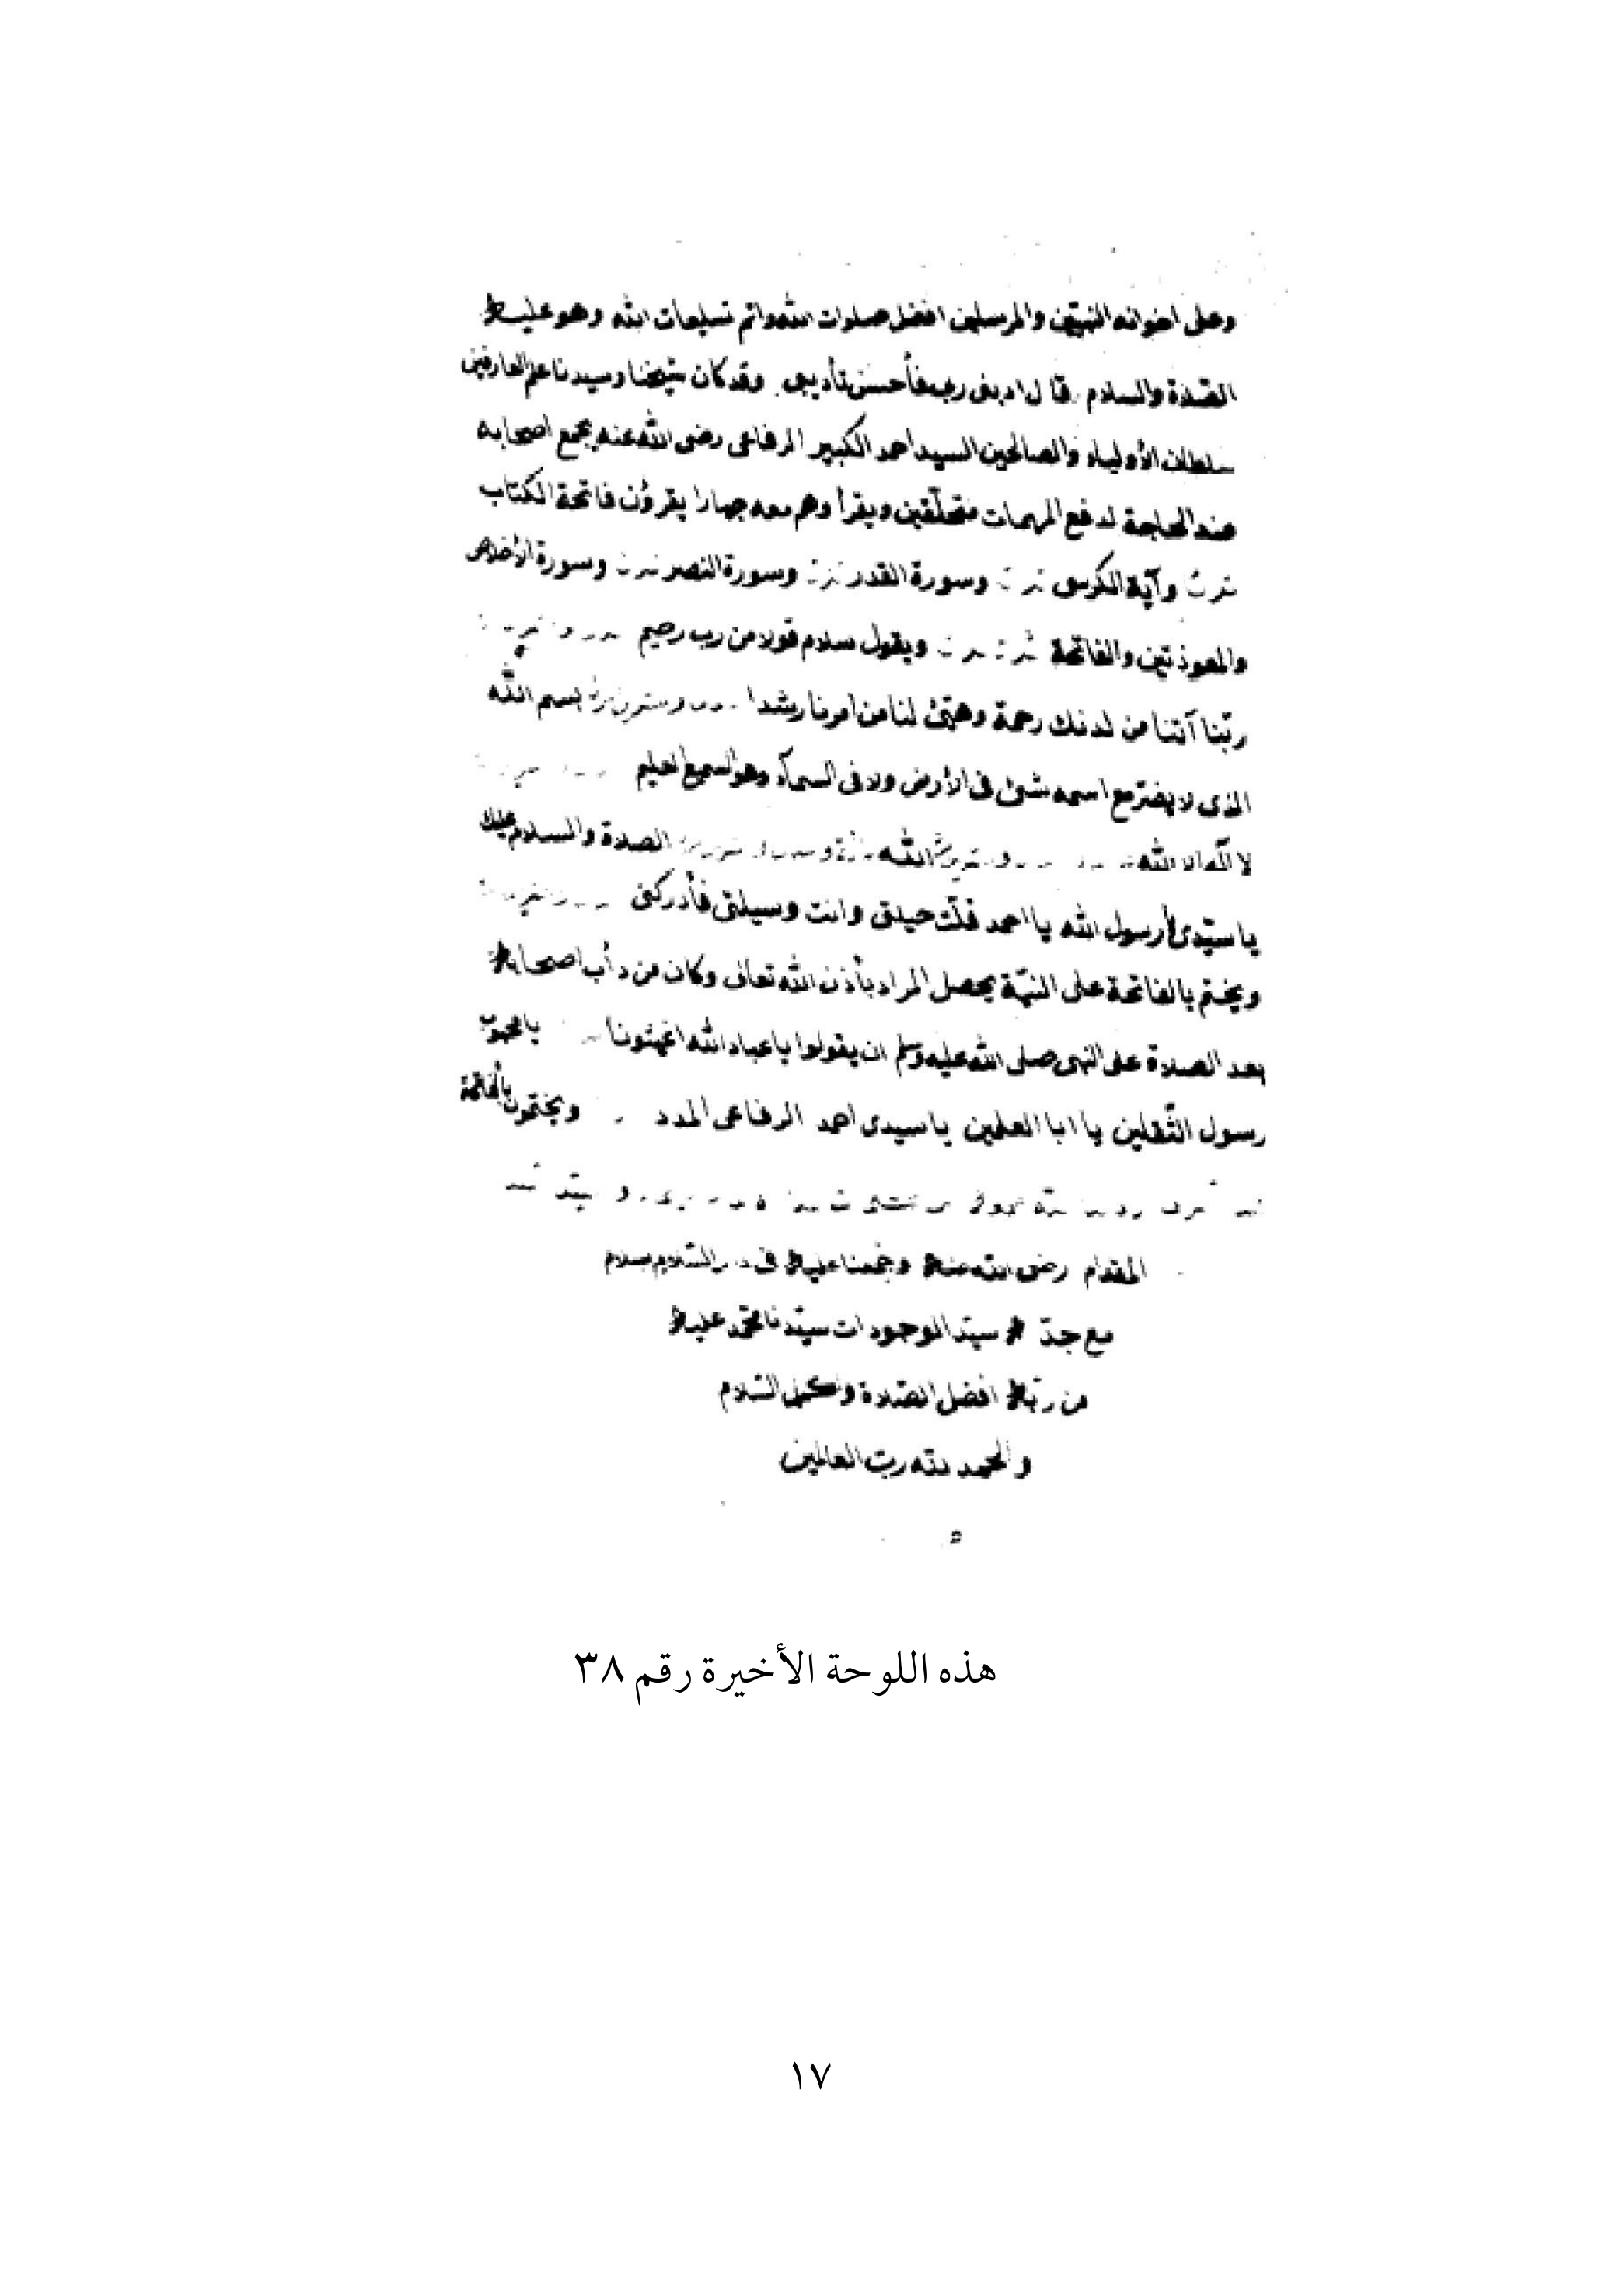 وعلى اخوانه النبيّين والمرسلين افضل صلوات الله واتم تسليمات الله وهو عليه
الصّلاة والسلام قال ادبنى ربى فأحسن تأديبى وقد كان شيخنا وسيدنا علم العارفين
سلطان الأولياء والصالحين السيد احمد الكبير الرفاعى رضى الله عنه يجمع اصحابه
عند الحاجة لدفع المهمات متحلّقين ويقرأ وهم معه جهارا يقرؤن فاتحة الكتاب
وآية الكرسى وسورة القدر وسورة النصر وسورة الأخلاص
والمعوذتين والفاتحة ويقول سلام قولا من رب رحيم
ربّنا آتنا من لدنك رحمة وهيّئ لنا من امرنا رشدا بسم الله
الذى لا يضرّ مع اسمه شئ فى الأرض ولا فى السمآء وهو السميع العليم
لا اله الا الله الله الصلاة والسلام عليك
يا سيّدى يا رسول الله يا احمد قلّت حيلتى وانت وسيلتى فأدركنى
ويختم بالفاتحة على النيّة يحصل المراد بأذن الله تعالى وكان من دأب اصحابه
بعد الصلاة على النبى صلى الله عليه وسلم ان يقولوا يا عباد الله اغيثونا يا محبوب
رسول الثّقلين يا ابا العلمين يا سيدى احمد الرفاعى المدد ويختمون بالفاتحة
المقدام رضى الله عنه وجمعنا عليه فى دار السّلام بسلام
مع جدّه سيّد الموجودات سيّدنا محمّد عليه
من ربّه افضل الصّلاة واكمل السّلام
والحمد لله ربّ العالمين
هذه اللوحة الأخيرة رقم ٣٨
١٧